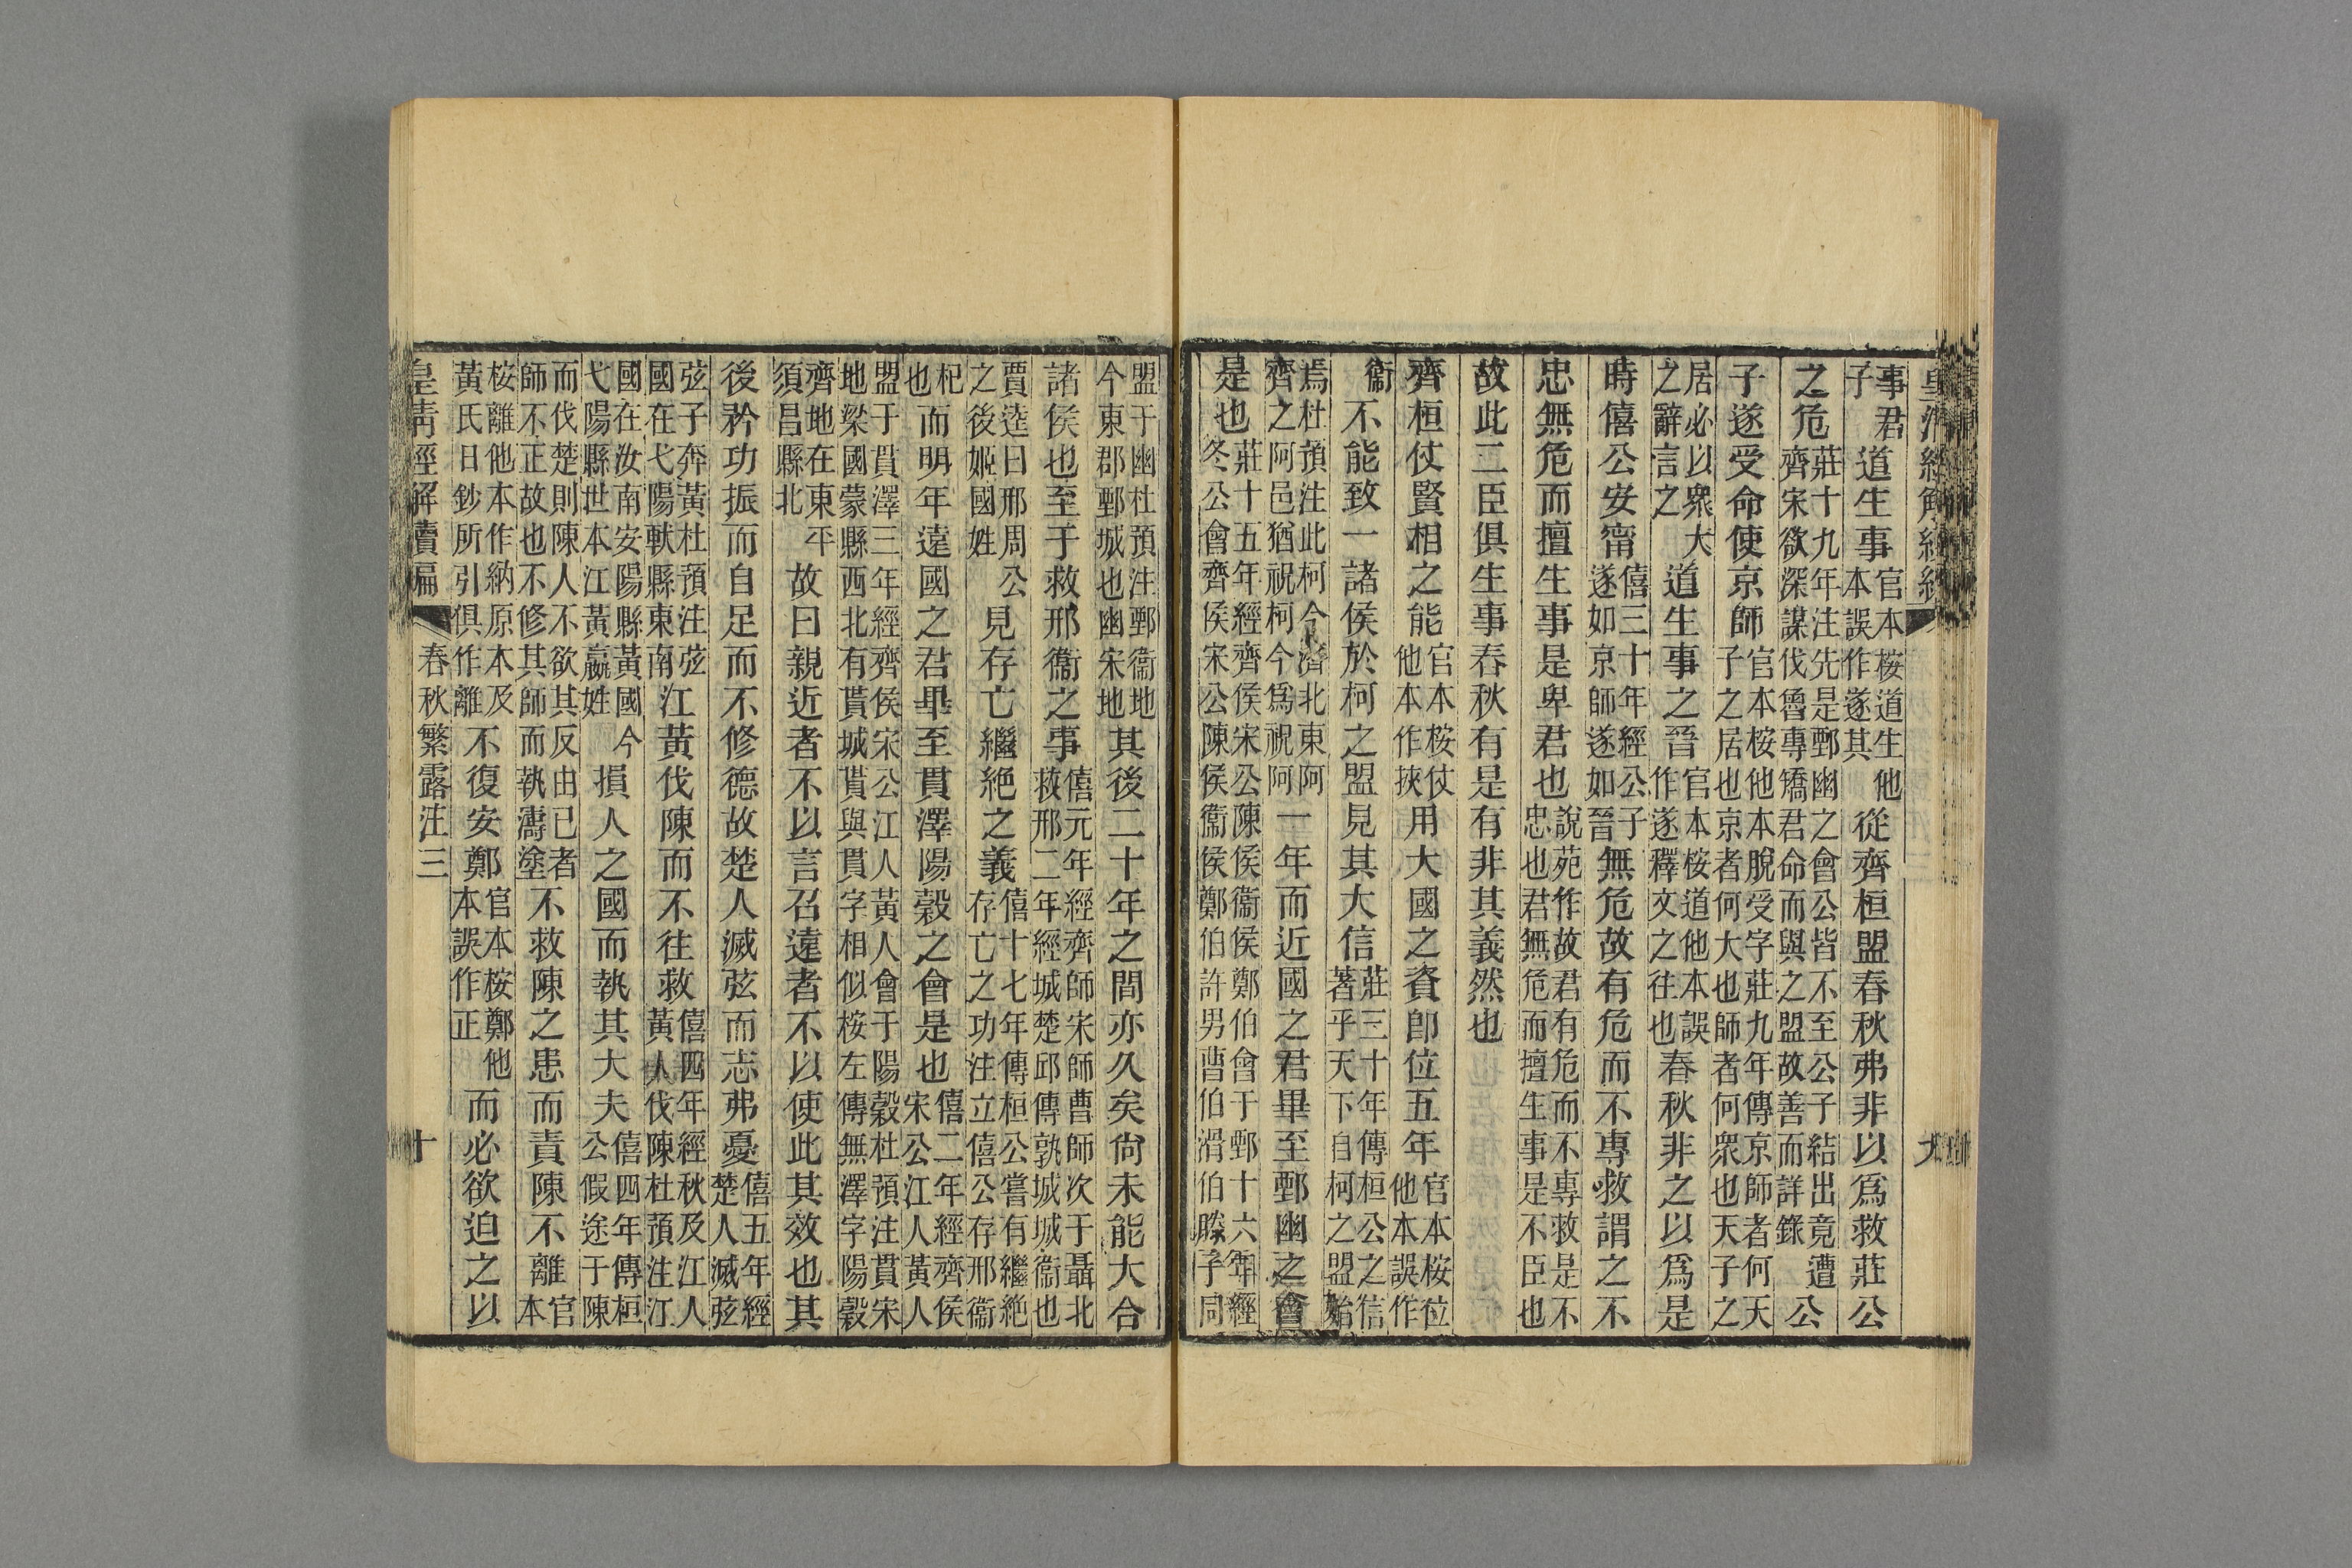 事君子道生事官本桉道生他本誤作遂其從齊桓盟春秋弗非以爲救莊公
之危莊十九年注先是鄄幽之會公皆不至公子結出竟遭齊宋欲深謀伐魯專矯君命而與之盟故善而詳錄公
子遂受命使京師官本桉他本脫受字莊九年傳京師者何天子之居也京者何大也師者何衆也天子之
居必以衆大之辭言之道生事之晉官本桉道他本誤作遂釋文之往也春秋非之以爲是
時僖公安甯僖三十年經公子遂如京師遂如晉無危故有危而不專救謂之不
忠無危而擅生事是卑君也說苑作故君有危而不專救是不忠也君無危而擅生事是不臣也
故此二臣俱生事春秋有是有非其義然也
齊桓仗賢相之能官本桉仗他本作挾用大國之資卽位五年官本桉位他本誤作
衞不能致一諸侯於柯之盟見其大信莊三十年傳桓公之信著乎天下自柯之盟始
焉杜預注此柯今濟北東阿齊之阿邑猶祝柯今爲祝阿一年而近國之君畢至鄄幽之會
是也莊十五年經齊侯宋公陳侯衞侯鄭伯會于鄄十六年經冬公會齊侯宋公陳侯衞侯鄭伯許男曹伯滑伯滕子同
盟于幽杜預注鄄衞地今東郡鄄城也幽宋地其後二十年之間亦久矣尙未能大合
諸侯也至于救邢衞之事僖元年經齊師宋師曹師次于聶北救邢二年經城楚邱傳孰城城衞也
賈逵曰邢周公之後姬國姓見存亡繼絶之義僖十七年傳桓公嘗有繼絶存亡之功注立僖公存邢衞
杞也而明年遠國之君畢至貫澤陽穀之會是也僖二年經齊侯宋公江人黃人
盟于貫澤三年經齊侯宋公江人黃人會于陽穀杜預注貫宋地梁國蒙縣西北有貰城貰與貫字相似桉左傳無澤字陽穀
齊地在東平須昌縣北故曰親近者不以言召遠者不以使此其效也其
後矜功振而自足而不修德故楚人滅弦而志弗憂僖五年經楚人滅弦
弦子奔黃杜預注弦國在弋陽軑縣東南江黃伐陳而不往救僖四年經秋及江人黃人伐陳杜預注江
國在汝南安陽縣黃國今弋陽縣世本江黃嬴姓損人之國而執其大夫僖四年傳桓公假途于陳
而伐楚則陳人不欲其反由已者師不正故也不修其師而執濤塗不救陳之患而責陳不離官本
桉離他本作納原本及黃氏日鈔所引俱作離不復安鄭官本桉鄭他本誤作正而必欲迫之以
皇清經解續編 春秋繁露注三 十